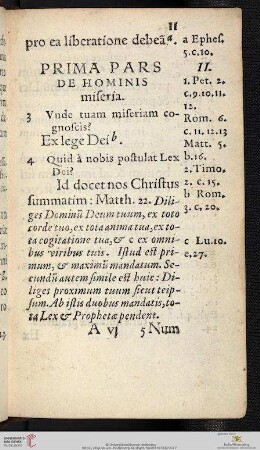 11
pro ea liberatione debeā a.
PRIMA PARS
DE HOMINIS
miseria.
3 Vnde tuam miseriam co-
gnoscis?
Ex lege Dei b.
4 Quid à nobis postulat Lex
Dei?
Id docet nos Christus
summatim: Matth. 22. Dili-
ges Dominū Deum tuum, ex toto
corde tuo, ex tota anima tua, ex to-
ta cogitatione tua, & c ex omni-
bus viribus tuis. Istud est pri-
mum, & maximū mandatum. Se-
cundū autem simile est huic: Di-
liges proximum tuum sicut teip-
sum. Ab istis duobus mandatis, to-
ta Lex & Prophetæ pendent.
A vj 5 Num
a Ephes.
5. c. 10.
II.
1. Pet. 2.
c. 9. 10. 11.
12.
Rom. 6.
c. 11. 12. 13
Matt. 5.
b. 16.
2. Timo.
2. c. 15.
b Rom.
3. c. 20.
c Lu. 10.
c. 27.